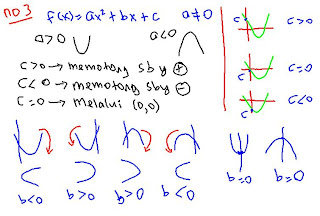 no 3 f(x) = ax² + bx + c a≠0
a>0 a<0
c>0 → memotong sby +
c<0 → memotong sby −
c=0 → melalui (0,0)
c c>0
c=0
c c<0
b<0 b>0 b>0 b<0 b=0 b=0